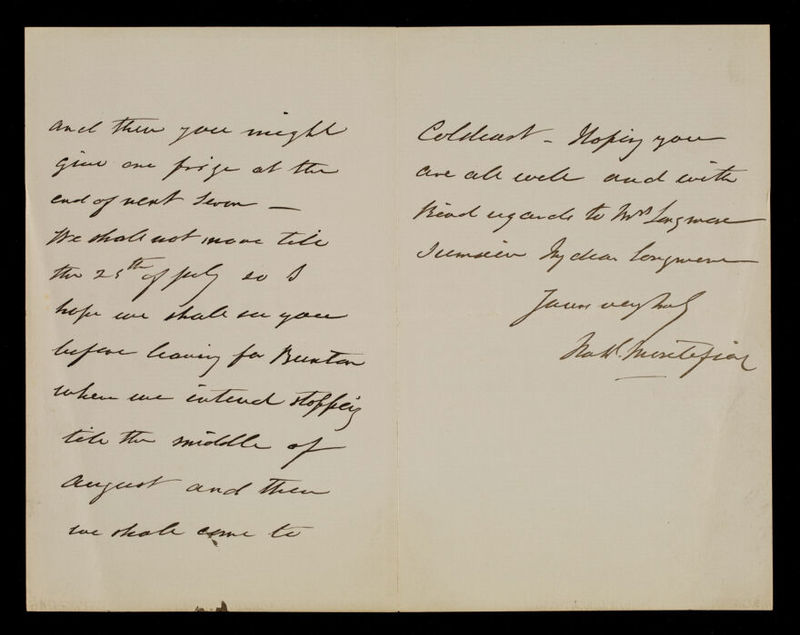 and then you might
give one prize at the
end of next Term —
We shall not move till
the 25th of July so I
hope we shall see you
before leaving for Buxton
where we intend stopping
till the middle of
August and then
we shall come to
Coldeast - Hoping you
are all well and with
Kind regards to Mrs Longmore
I remain My dear Longmore
Yours very truly
Nathl. Montefiore